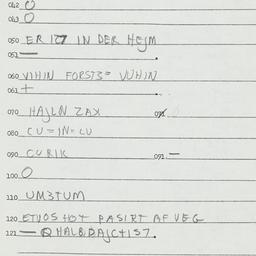 042 O
043 O
050 ER IZ IN DER HEJM
051 —
060 VIHIN FORSTS= VUHIN
061 +
070 HAJLN ZAX 071
080 CU=IN=CU
090 CURIK 091 —
100 O
110 UM3TUM
120 ETVOS HOT PASIRT AF VEG
121 —